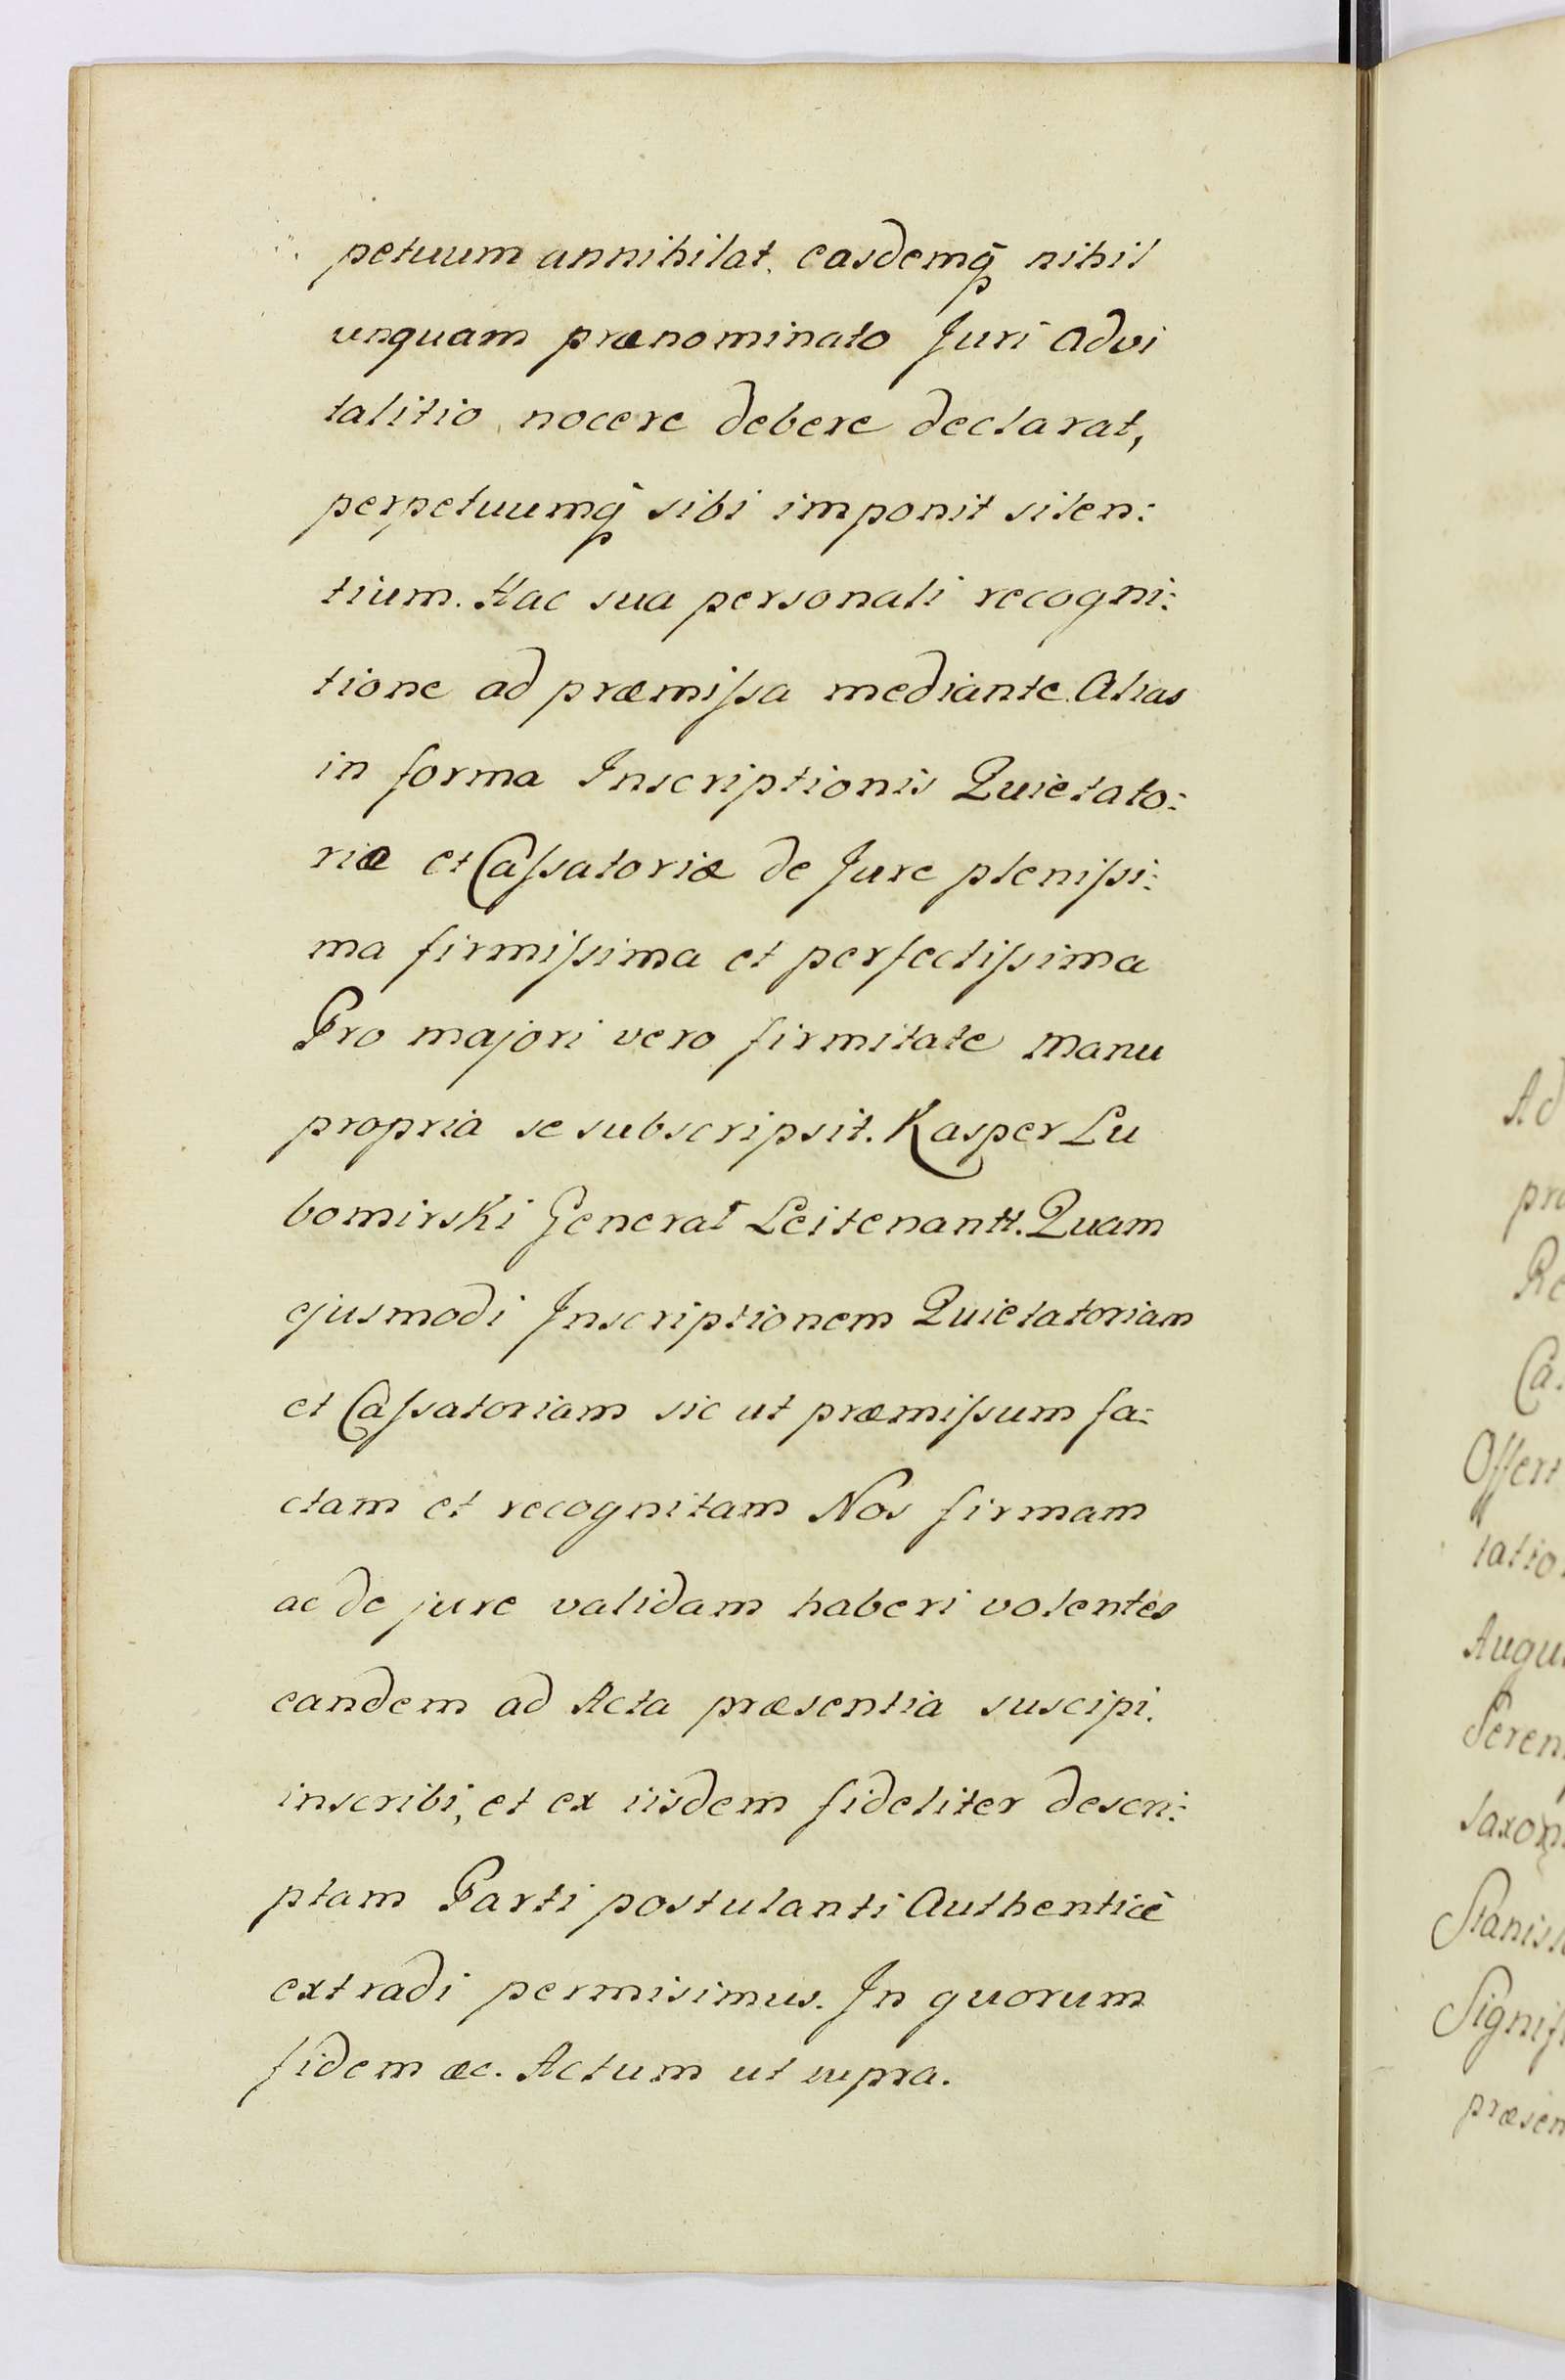 petuum annihilat. easdemq̃ nihil
unquam prænominato Juri advi
talitio nocere debere declarat,
perpetuumq̃ sibi imponit silen:
tium. Hac sua personali recogni:
tione ad præmiſsa mediante. Alias
in forma Inscriptionis Quietato:
riæ et Caſsatoriæ de Jure pleniſsi:
ma firmiſsima et perfectiſsima
Pro majori vero firmitate manu
propria se subscripsit. Kasper Lu
bomirski General Leitenantt. Quam
ejusmodi Inscriptionem Quietatoriam
et Caſsatoriam sic ut præmiſsum fa:
ctam et recognitam Nos firmam
ac de jure validam haberi volentes
eandem ad Acta præsentia suscipi.
inscribi, et ex iisdem fideliter descri:
ptam Parti postulanti Authenticè
extradi permisimus. In quorum
fidem æc. Actum ut supra.
Ad
præ
Re
Ca
Offert
tatio
Augu
Seren
Saxon
Stanisl
Signif
præsen